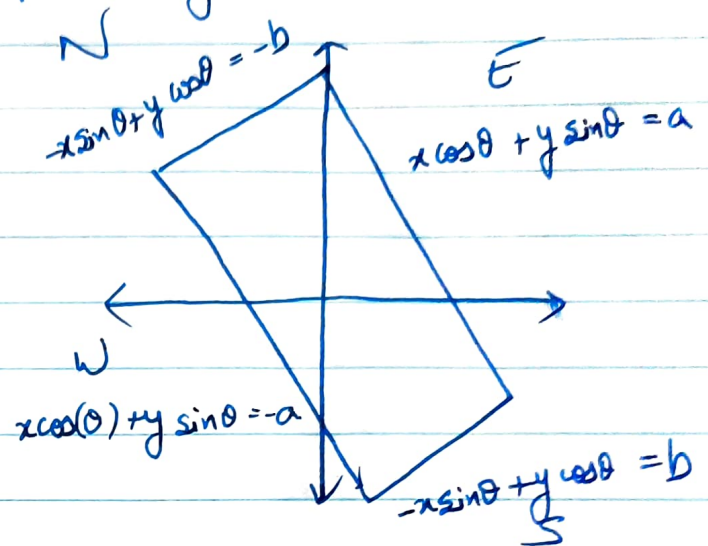 N
E
-x sin θ + y cos θ = -b
x cos θ + y sin θ = a
W
x cos(θ) + y sin θ = -a
-x sin θ + y cos θ = b
S